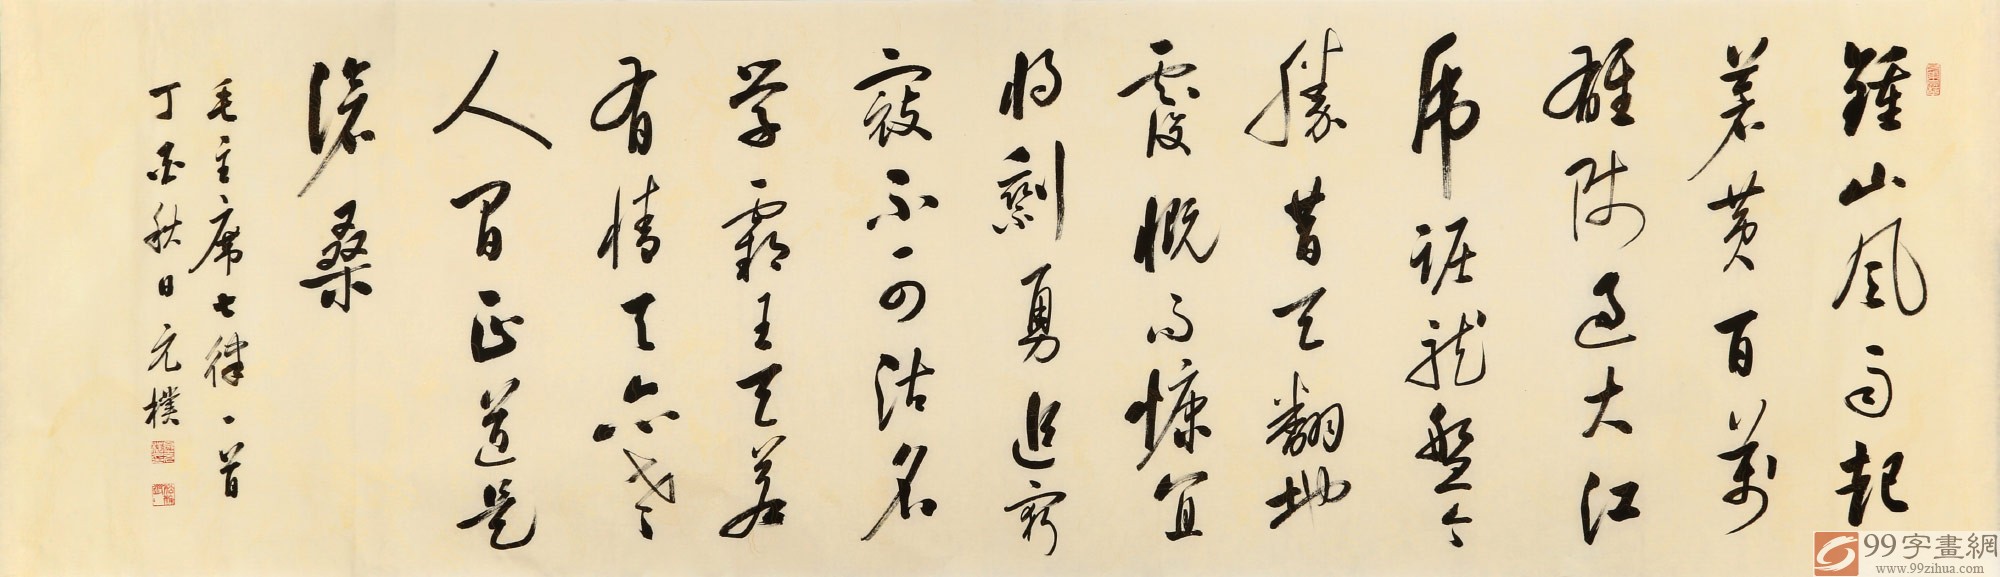 鍾山風雨起
蒼黃百萬
雄師過大江
虎踞龍盤今
勝昔天翻地
覆慨而慷宜
將剩勇追窮
寇不可沽名
學霸王天若
有情天亦老
人間正道是
滄桑
毛主席七律一首
丁酉秋日元樸
99字畫網
www.99zihua.com